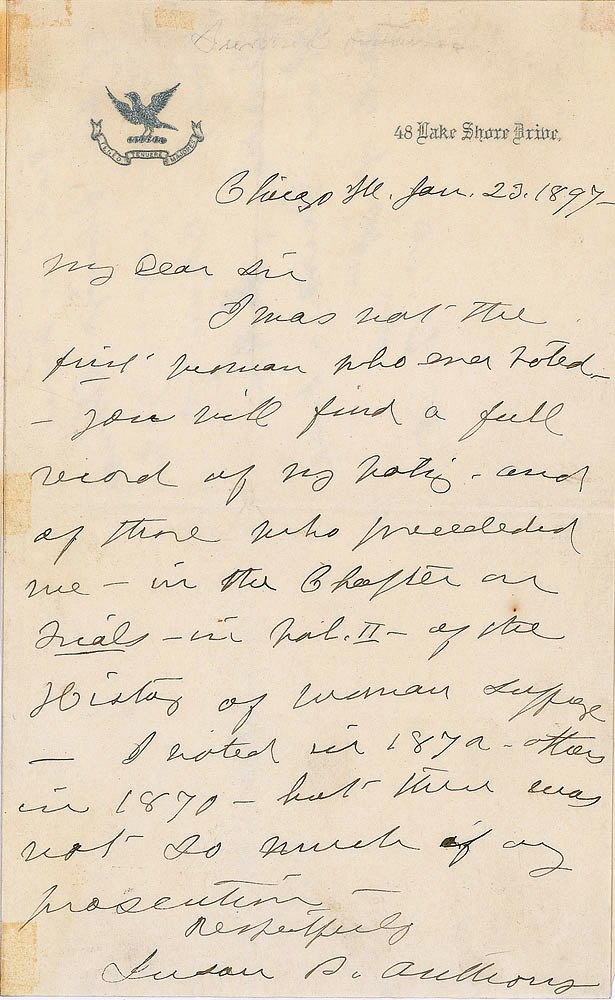 48 Lake Shore Drive.
TENUERE
Chicago Ill. Jan. 23. 1897–
My Dear Sir
I was not the
first woman who ever voted –
– You will find a full
record of my voting – and
of those who preceeded
me – in the Chapter on
Trials – in Vol. II – of the
History of Woman Suffrage
– I voted in 1872 – others
in 1870 – but there was
not so much if any
prosecution –
Respectfully
Susan B. Anthony